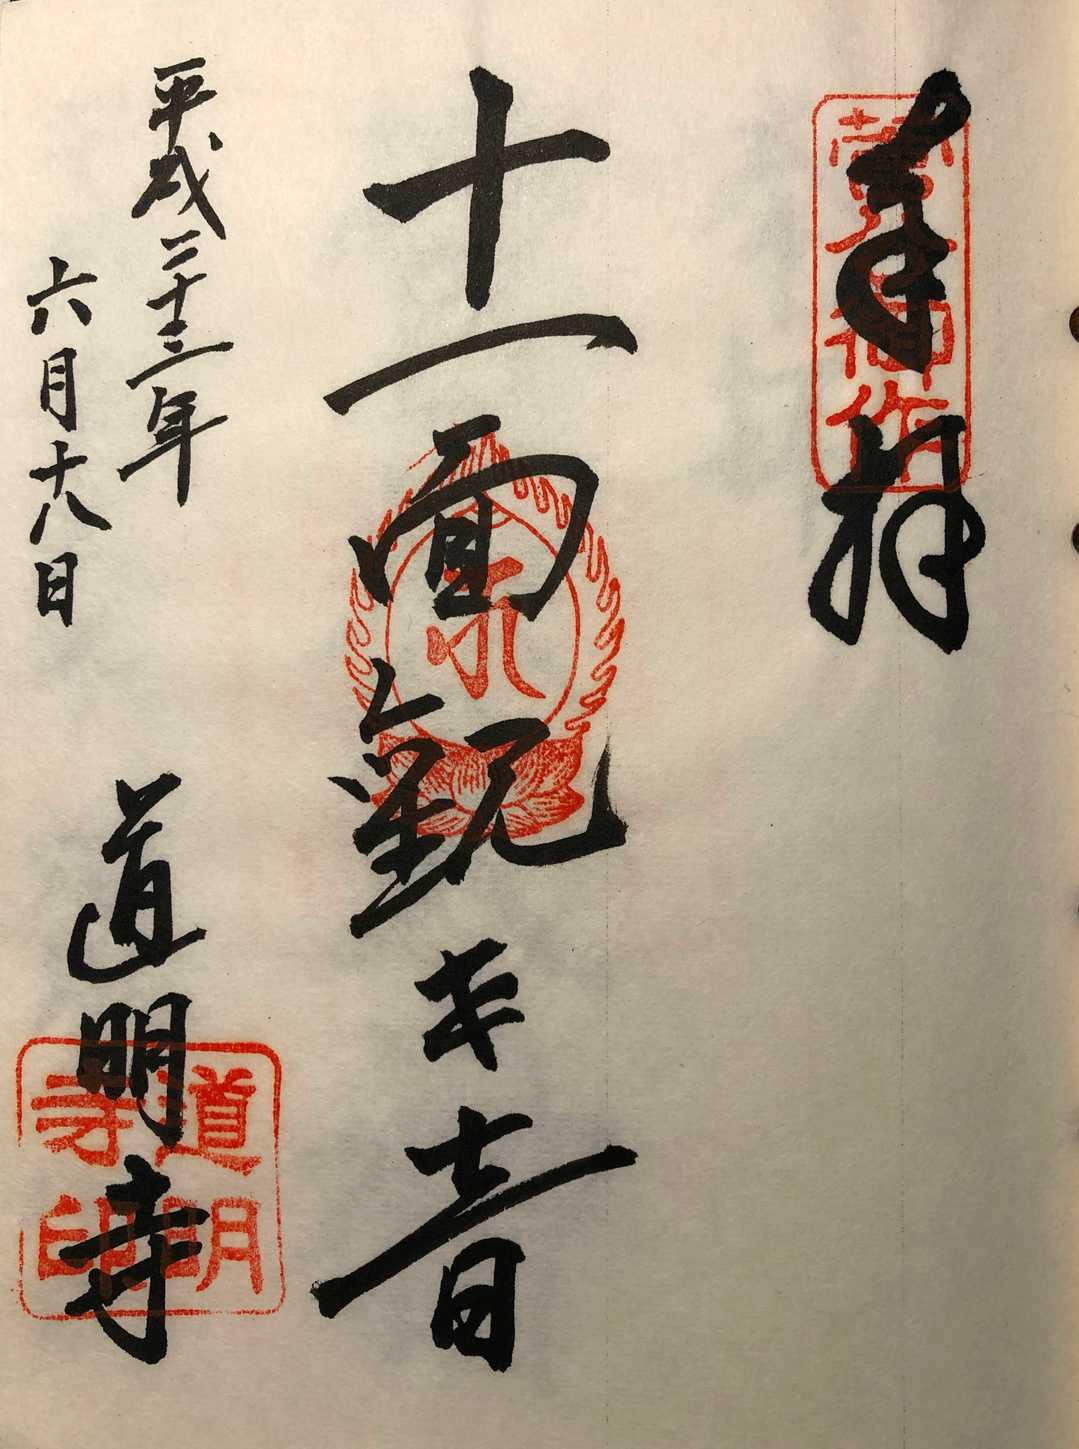 奉拝
菅公御作
十一面観世音
平成二十三年
六月十八日
道明寺
道明
寺印